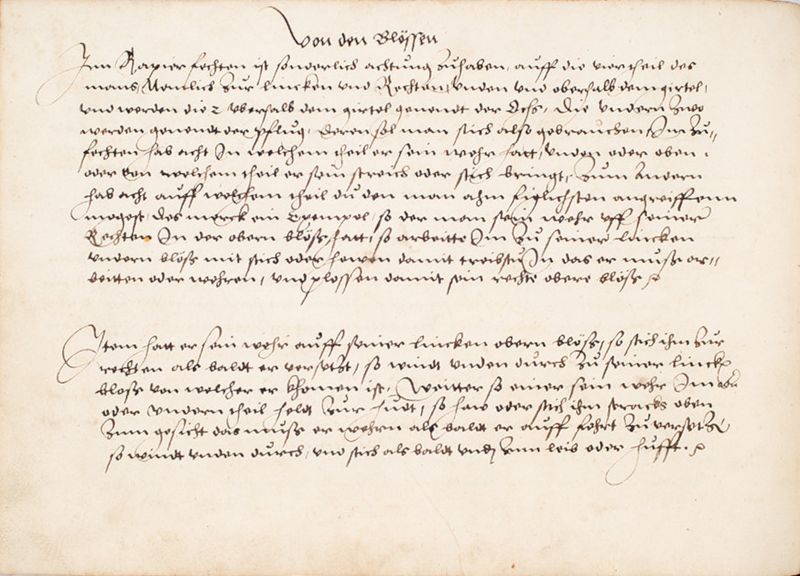 Von den Blössen
Inn Rapier fechten ist sonderlich achtung zuhaben, auff die viertheil des
mans, Nemlich zur lincken und Rechten, unden und oberhalb dem girtel,
und werden die 2 uberhalb dem girtel genendt der Ochs, Die undern zwo
werden genendt der pflug, deren sol man sich also gebrauchen, Im zu=
fechten hab acht In welchem theil er sein wehr hatt, unden oder oben,
oder von welchem theil er sein streich oder stich bringt, Zum Andern
hab acht auff welchem theil du den man ahm fieglichsten angreiffenn
mogest, des merck ein Exempel, so der man sein wehr uff seiner
Rechten In der obern blösse hatt, so arbeitte Im zu seiner lincken
undern blöss mit stich oder hewen damit treibstu In das er muss ar=
beitten oder wehren, und plossen damit sein rechte obere blöss
Item hatt er sein wehr auff seiner lincken obern blöss, so stich ihm zur
rechten als baldt er versetzt, so windt unden durch zu seiner linck
bloss von welcher er khomen ist, Weitter so einer sein wehr Im
oder undern theil heldt zur hudt, so haw oder stich ihm stracks oben
zum gesicht das muss er wehrn als baldt er auff fehrt zu versetzen
so windt unden durch, und stich als baldt zum leib oder hufft.